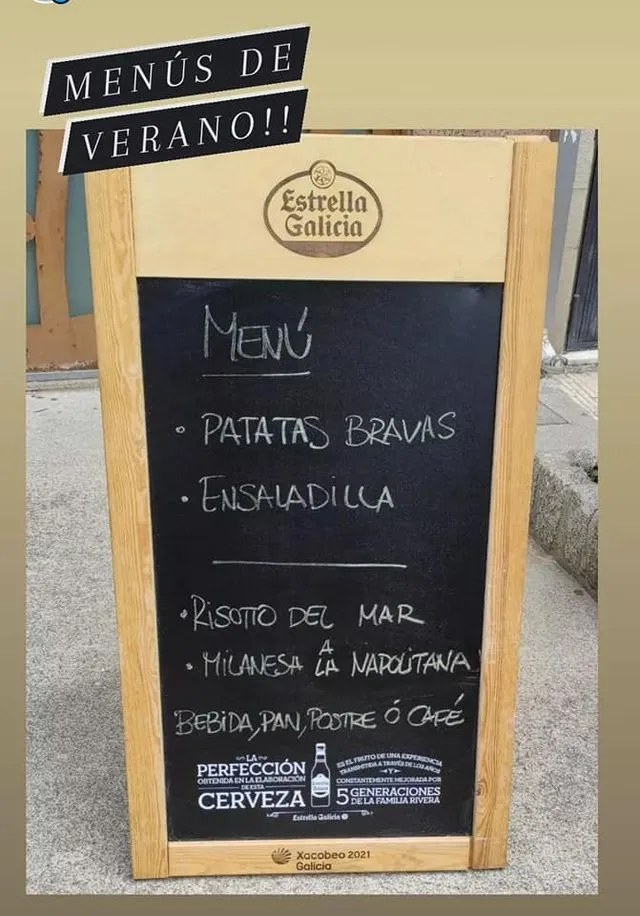 MENÚS DE
VERANO!!
Estrella
Galicia
MENÚ
• PATATAS BRAVAS
• ENSALADILLA
• RISOTTO DEL MAR
• MILANESA A LA NAPOLITANA
BEBIDA, PAN, POSTRE Ó CAFÉ
LA
PERFECCIÓN
OBTENIDA EN LA ELABORACIÓN
DE ESTA
CERVEZA
ES EL FRUTO DE UNA EXPERIENCIA
TRANSMITIDA A TRAVÉS DE LOS AÑOS
Y
CONSTANTEMENTE MEJORADA POR
5 GENERACIONES
DE LA FAMILIA RIVERA
Estrella Galicia
Xacobeo 2021
Galicia